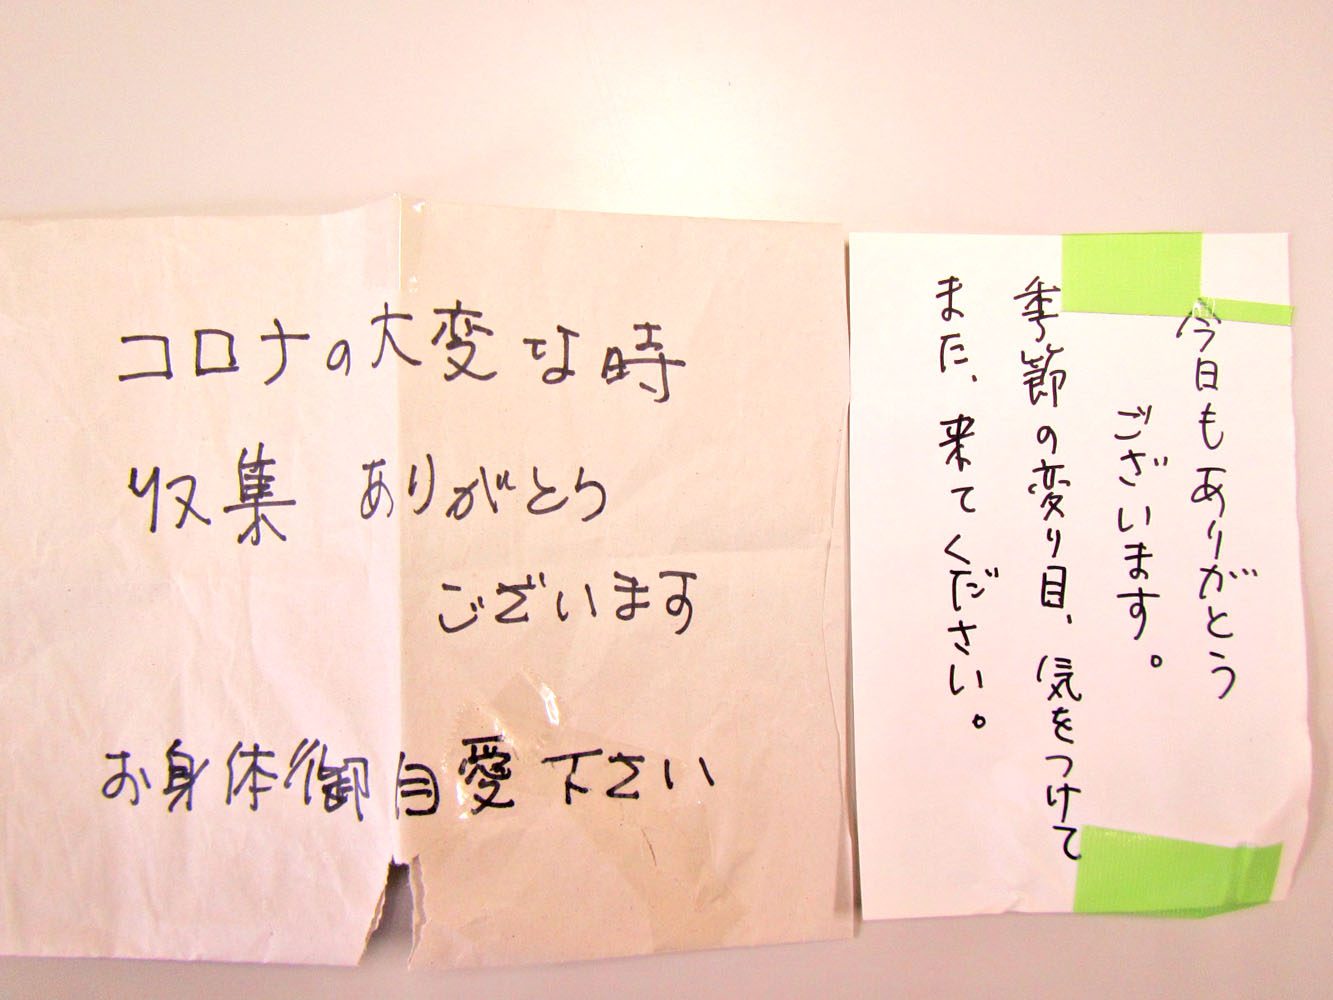 コロナの大変な時
収集 ありがとう
ございます
お身体御自愛下さい
今日もありがとう
ございます。
季節の変り目、気をつけて
また、来てください。